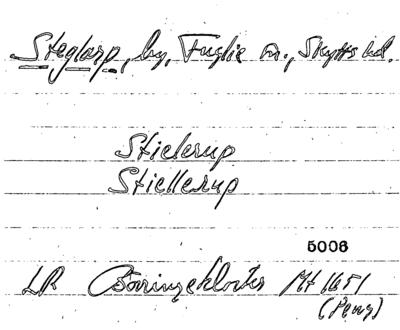 Steglarp, by, Fuglie sn., Skytts hd.
Stielerup
Stiellerup
5006
LR Börringekloster Mt 1651
(Peng)